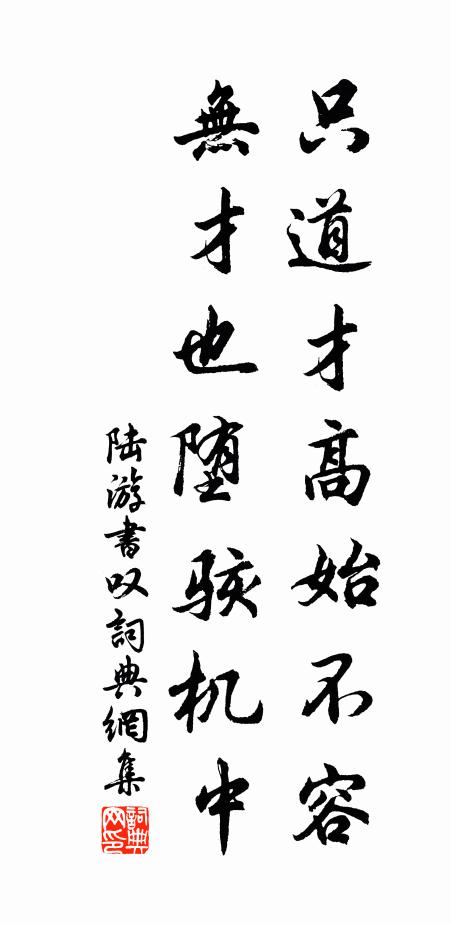 只道才高始不容
無才也堕骇机中
陆游書叹詞典網集
詞典
网印